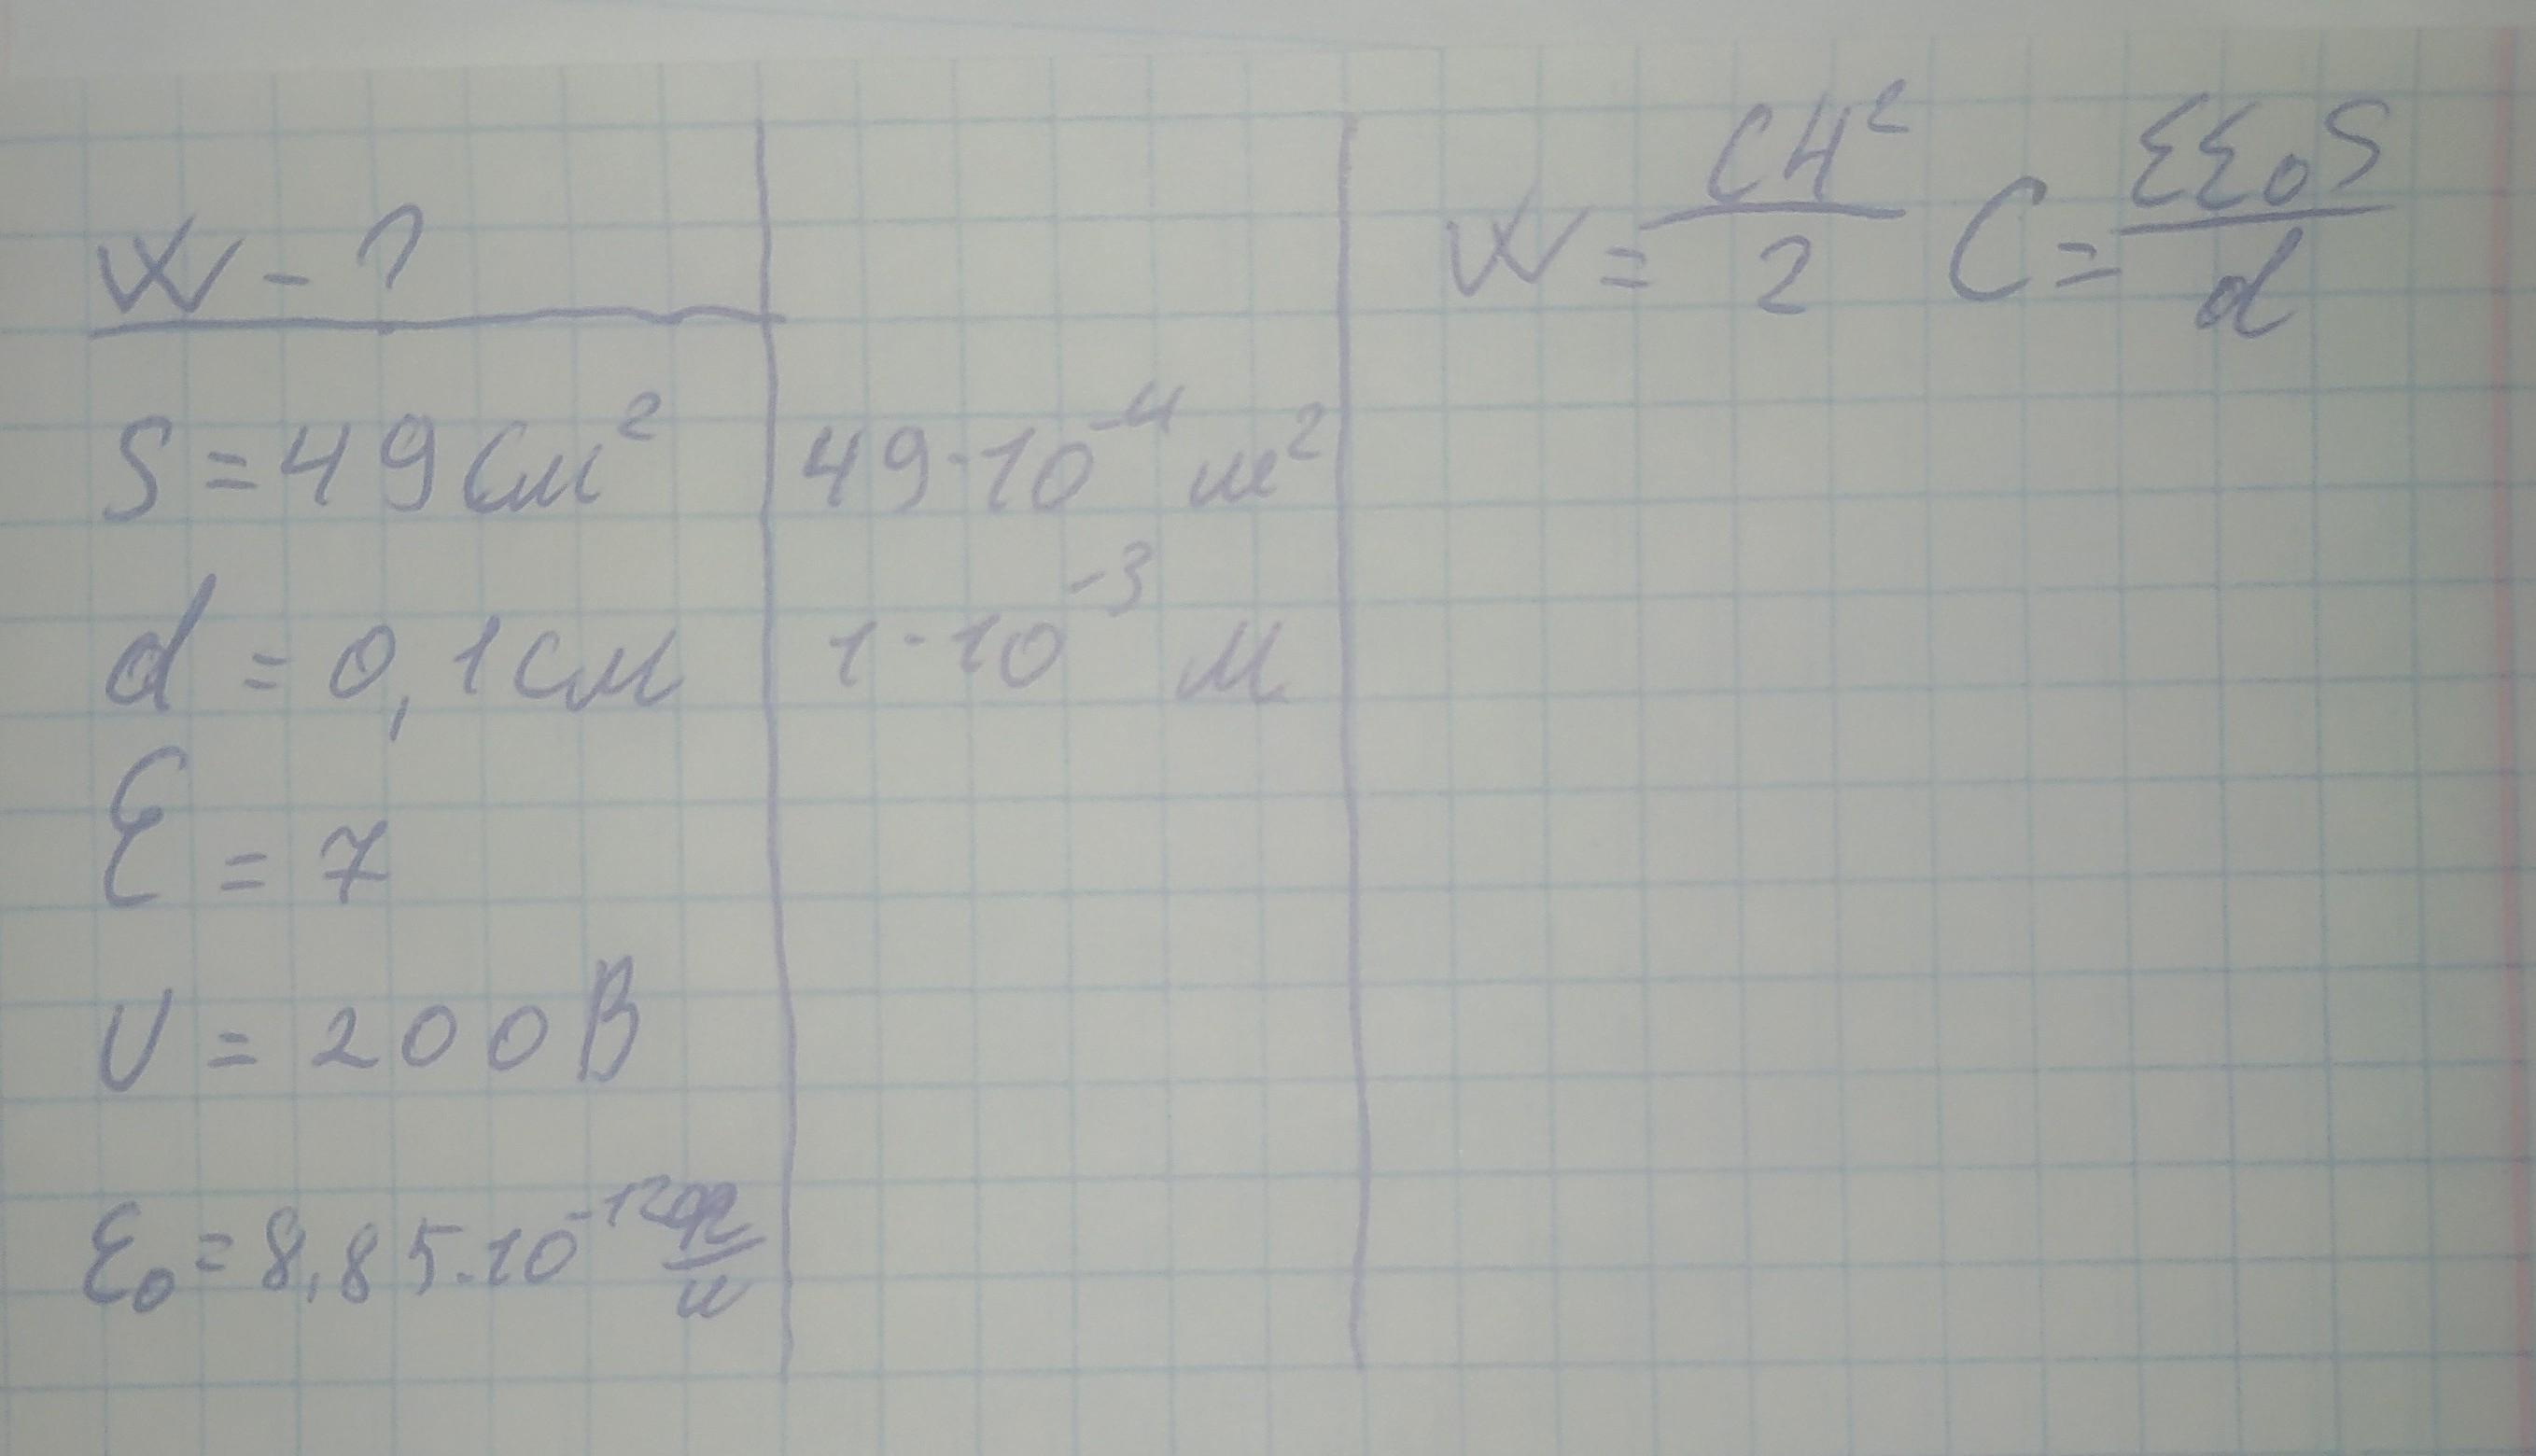 W - ?
S = 49 см² 49·10⁻⁴ м²
d = 0,1 см 1·10⁻³ м
ε = 7
U = 200 В
ε₀ = 8,85·10⁻¹² Ф/м
W = CU²/2 C = εε₀S/d